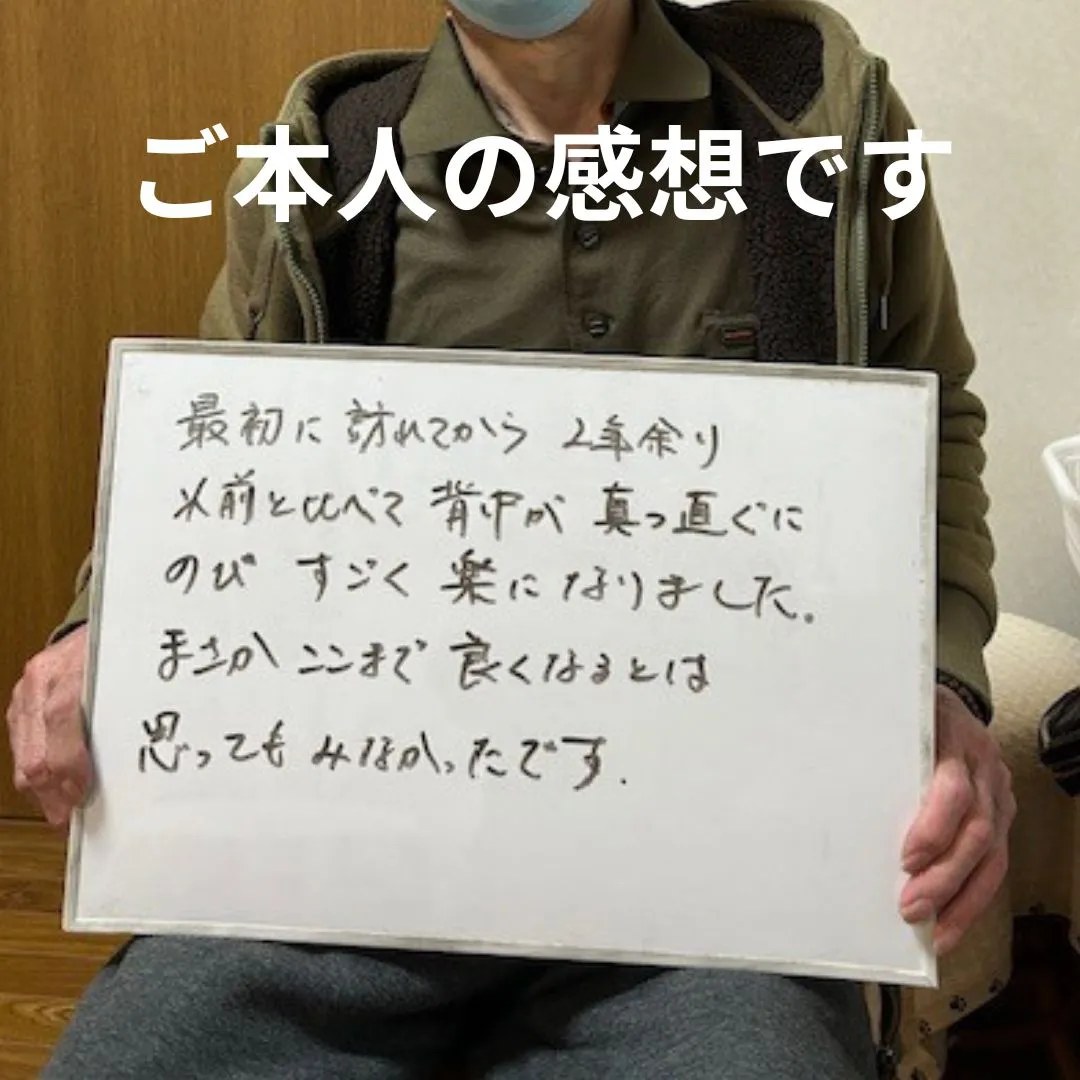 ご本人の感想です
最初に訪れてから 2年余り
以前と比べて 背中が 真っ直ぐに
のび すごく 楽に なりました。
まさか ここまで 良くなるとは
思っても みなかったです.